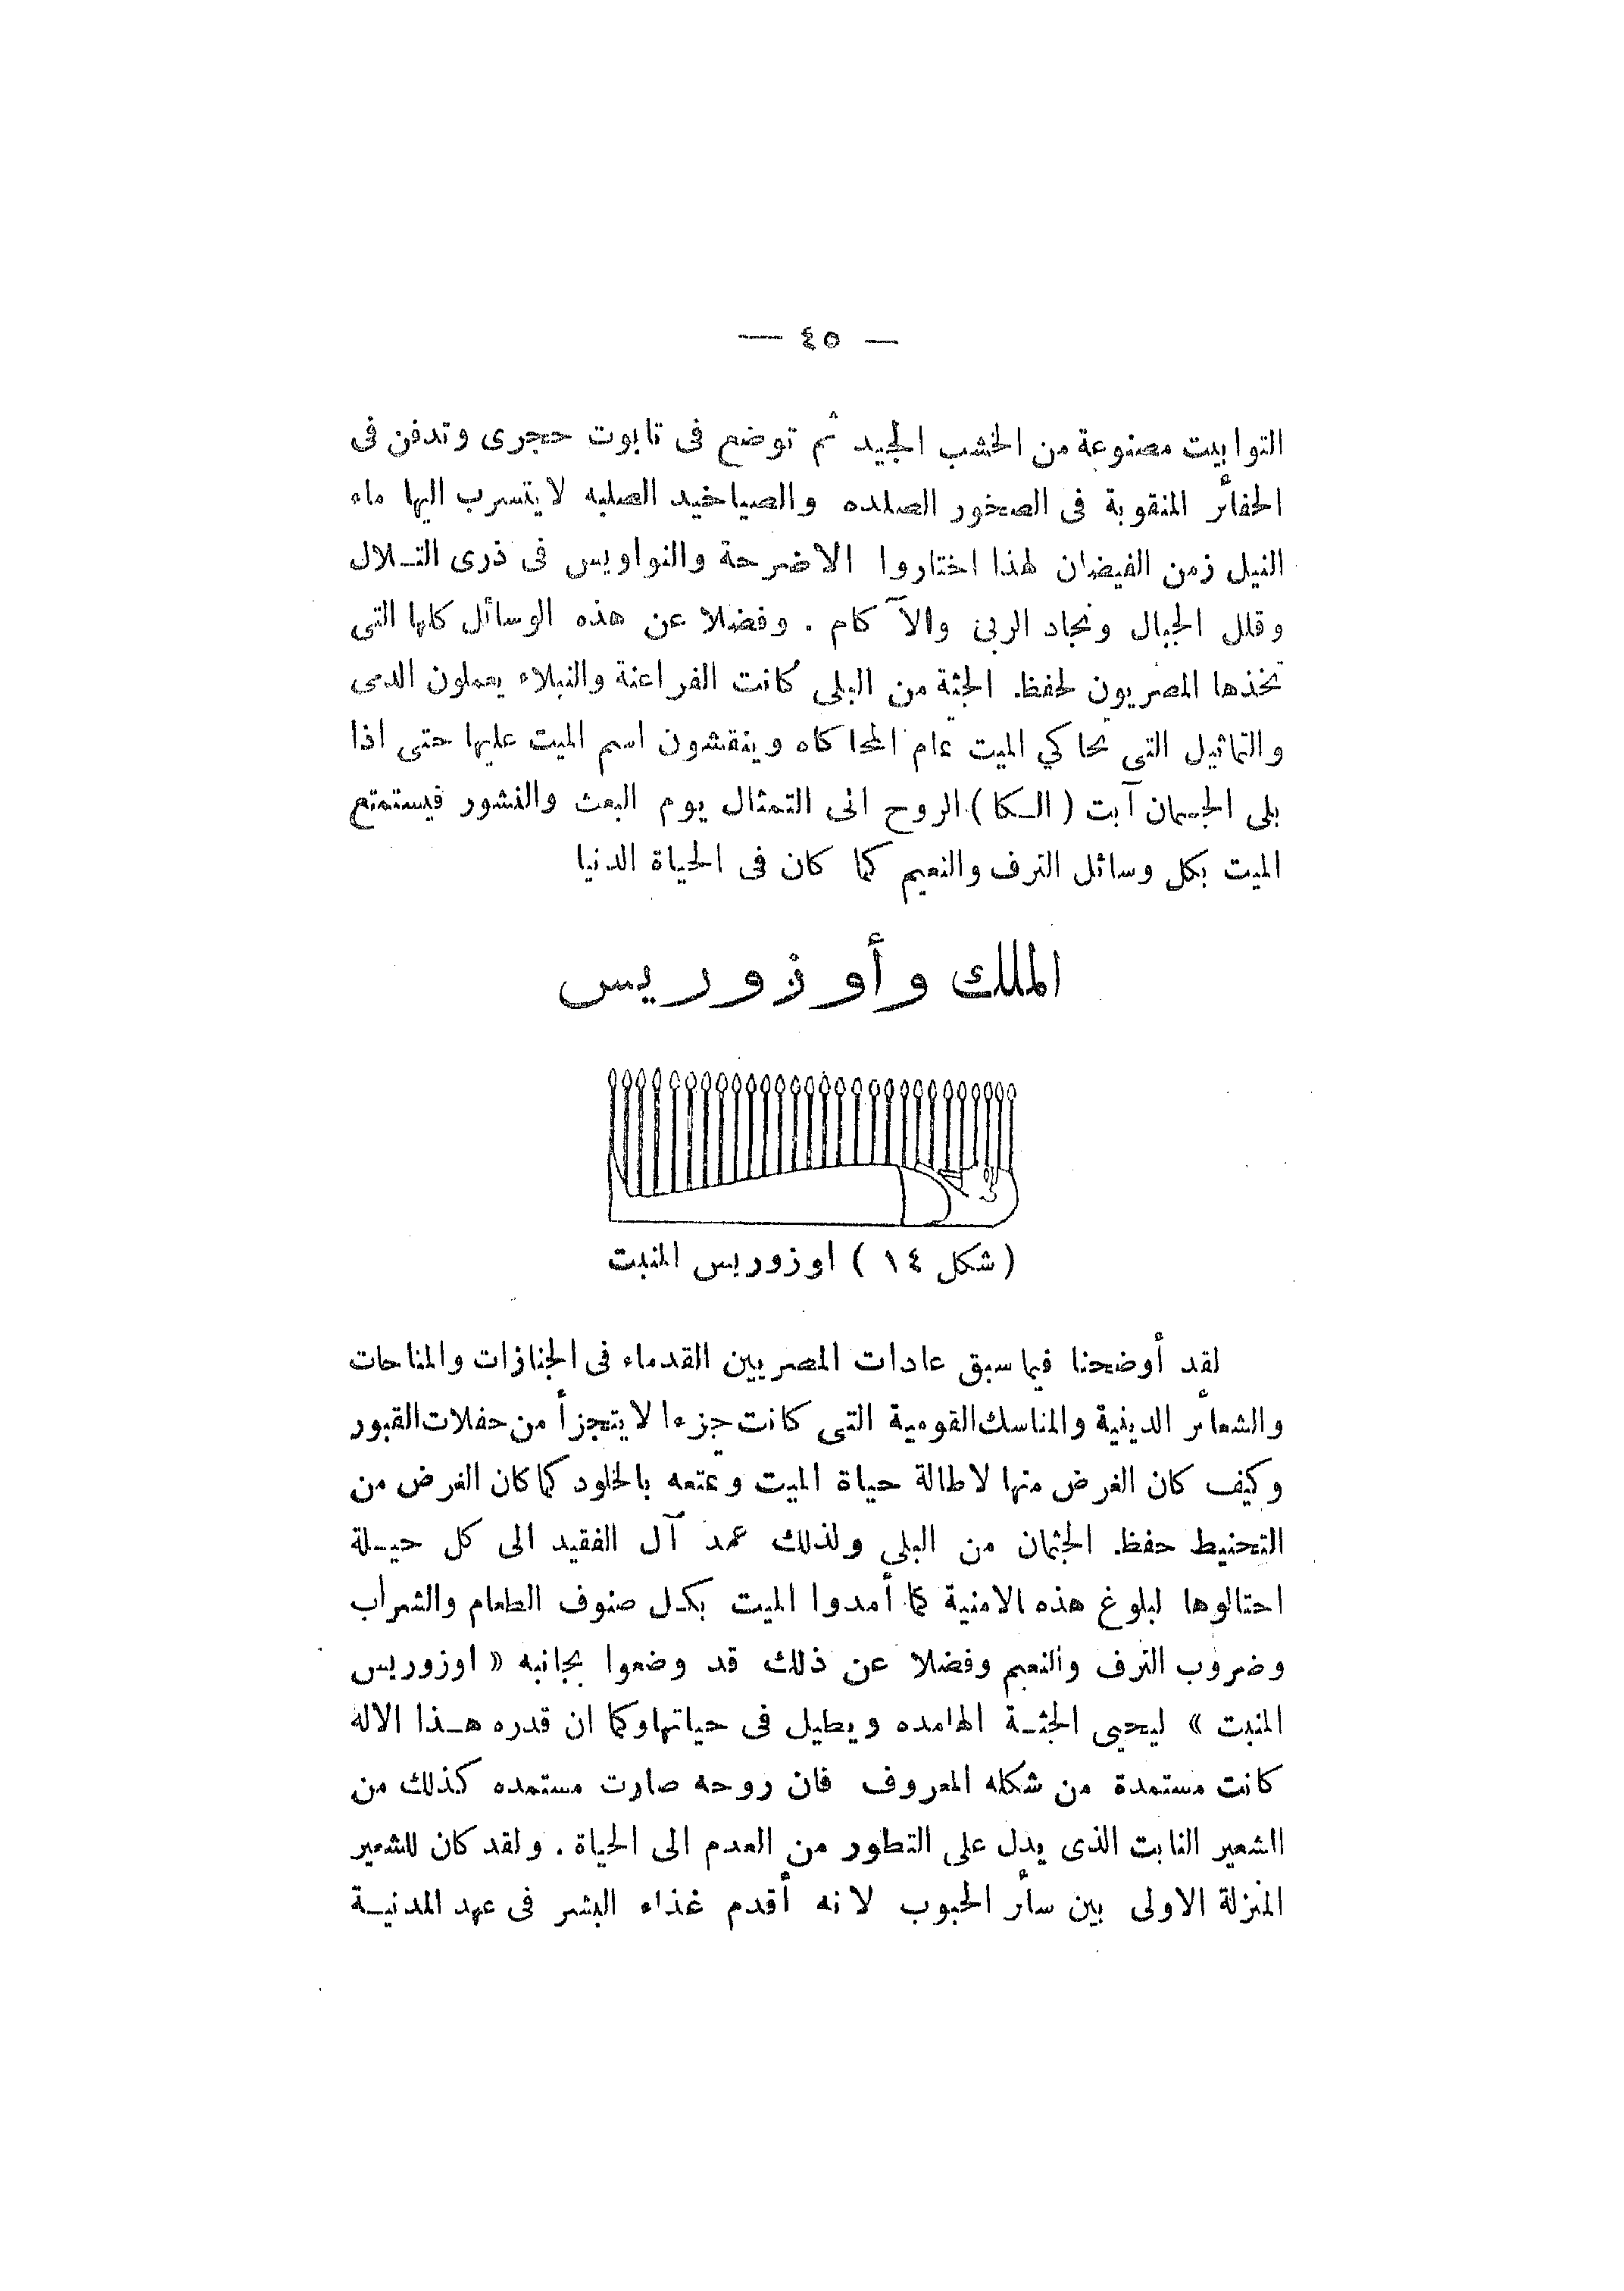 — ٤٥ —
التوابيت مصنوعة من الخشب الجيد ثم توضع فى تابوت حجرى وتدفن فى
الحفائر المنقوبة فى الصخور الصلده والصياخيد الصلبه لا يتسرب اليها ماء
النيل زمن الفيضان لهذا اختاروا الاضرحة والنواويس فى ذرى التـلال
وقلل الجبال ونجاد الربى والآكام . وفضلا عن هذه الوسائل كلها التى
تخذها المصريون لحفظ الجثة من البلى كانت الفراعنة والنبلاء يعملون الدمى
والتماثيل التى تحاكي الميت تمام المحاكاه وينقشون اسم الميت عليها حتى اذا
بلى الجسمان آبت ( الـكا ) الروح الى التمثال يوم البعث والنشور فيستمتع
الميت بكل وسائل الترف والنعيم كما كان فى الحياة الدنيا
الملك وأوزوريس
( شكل ١٤ ) اوزوريس المنبت
لقد أوضحنا فيما سبق عادات المصريين القدماء فى الجنازات والمناحات
والشعائر الدينية والمناسك القومية التى كانت جزءا لا يتجزأ من حفلات القبور
وكيف كان الغرض منها لاطالة حياة الميت وتمتعه بالخلود كما كان الغرض من
التحنيط حفظ الجثمان من البلى ولذلك عمد آل الفقيد الى كل حيـلة
احتالوها لبلوغ هذه الامنية كما أمدوا الميت بكل صنوف الطعام والشراب
وضروب الترف والنعيم وفضلا عن ذلك قد وضعوا بجانبه « اوزوريس
المنبت » ليحيى الجثـة الهامده ويطيل فى حياتها وكما ان قدره هـذا الاله
كانت مستمدة من شكله المعروف فان روحه صارت مستمده كذلك من
الشعير النابت الذى يدل على التطور من العدم الى الحياة . ولقد كان للشعير
المنزلة الاولى بين سائر الحبوب لانه أقدم غذاء البشر فى عهد المدنيـة